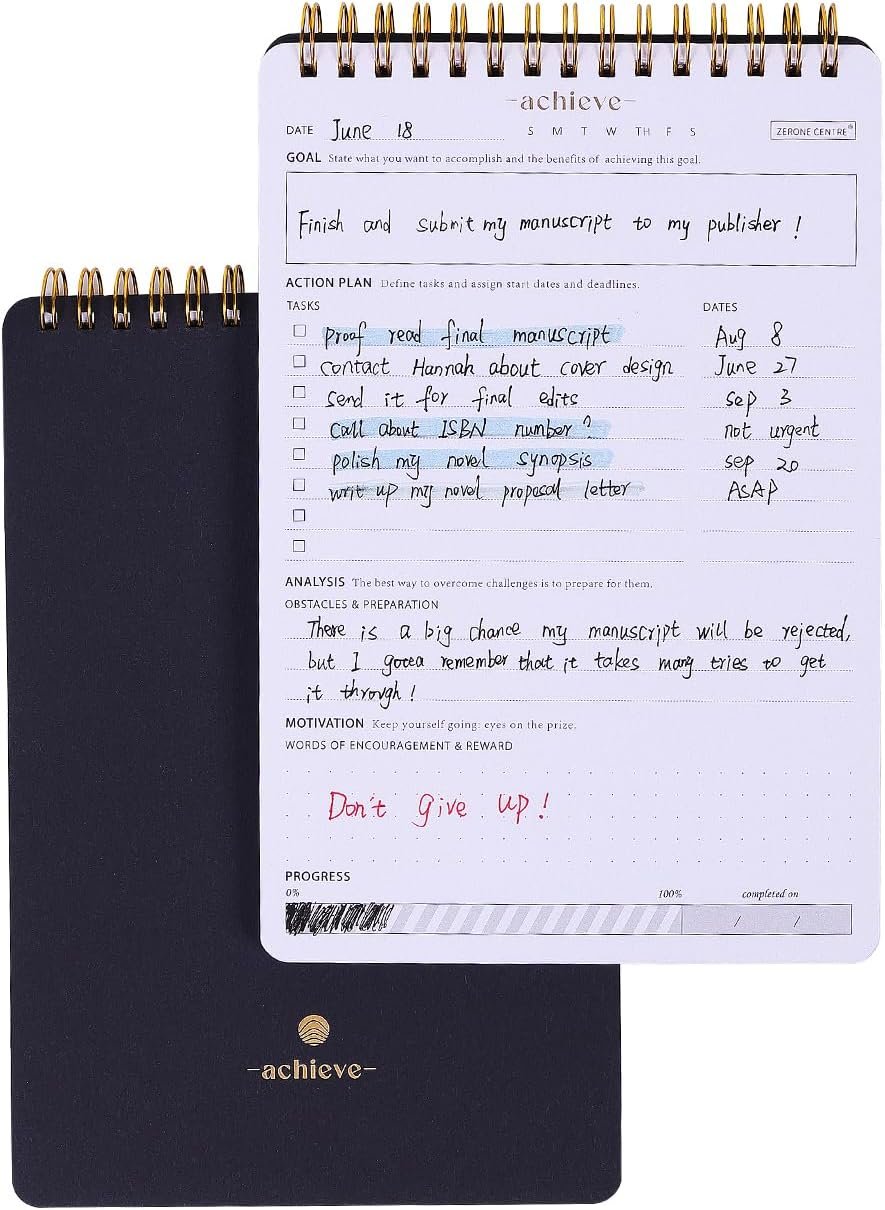 -achieve-
DATE June 18 S M T W TH F S ZERONE CENTRE®
GOAL State what you want to accomplish and the benefits of achieving this goal.
Finish and submit my manuscript to my publisher!
ACTION PLAN Define tasks and assign start dates and deadlines.
TASKS DATES
proof read final manuscript Aug 8
contact Hannah about cover design June 27
send it for final edits sep 3
call about ISBN number? not urgent
polish my novel synopsis sep 20
writ up my novel proposal letter ASAP
ANALYSIS The best way to overcome challenges is to prepare for them.
OBSTACLES & PREPARATION
There is a big chance my manuscript will be rejected,
but I gotta remember that it takes many tries to get
it through!
MOTIVATION Keep yourself going: eyes on the prize.
WORDS OF ENCOURAGEMENT & REWARD
Don't give up!
PROGRESS
0% 100% completed on
/ /
-achieve-